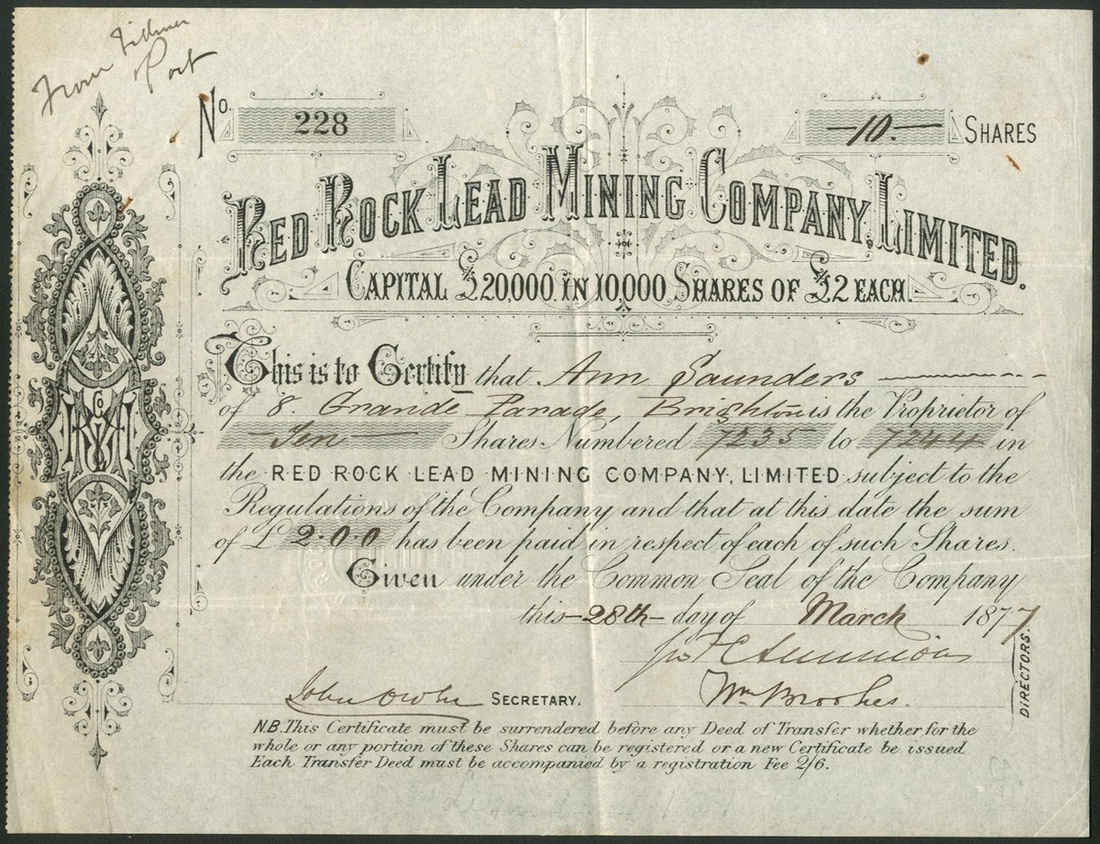 From
Port
No. 228
—10.— SHARES
RED ROCK LEAD MINING COMPANY, LIMITED.
CAPITAL £20,000. IN 10,000 SHARES OF £2 EACH.
This is to Certify that Ann Saunders
of 8. Grande Parade, Brighton is the Proprietor of
—Ten— Shares Numbered 7235 to 7244 in
the RED ROCK LEAD MINING COMPANY, LIMITED subject to the
Regulations of the Company and that at this date the sum
of £ 2.0.0 has been paid in respect of each of such Shares.
Given under the Common Seal of the Company
this—28th—day of March 1877
John SECRETARY.
Wm. Brookes.
DIRECTORS.
N.B. This Certificate must be surrendered before any Deed of Transfer whether for the
whole or any portion of these Shares can be registered or a new Certificate be issued
Each Transfer Deed must be accompanied by a registration Fee 2/6.